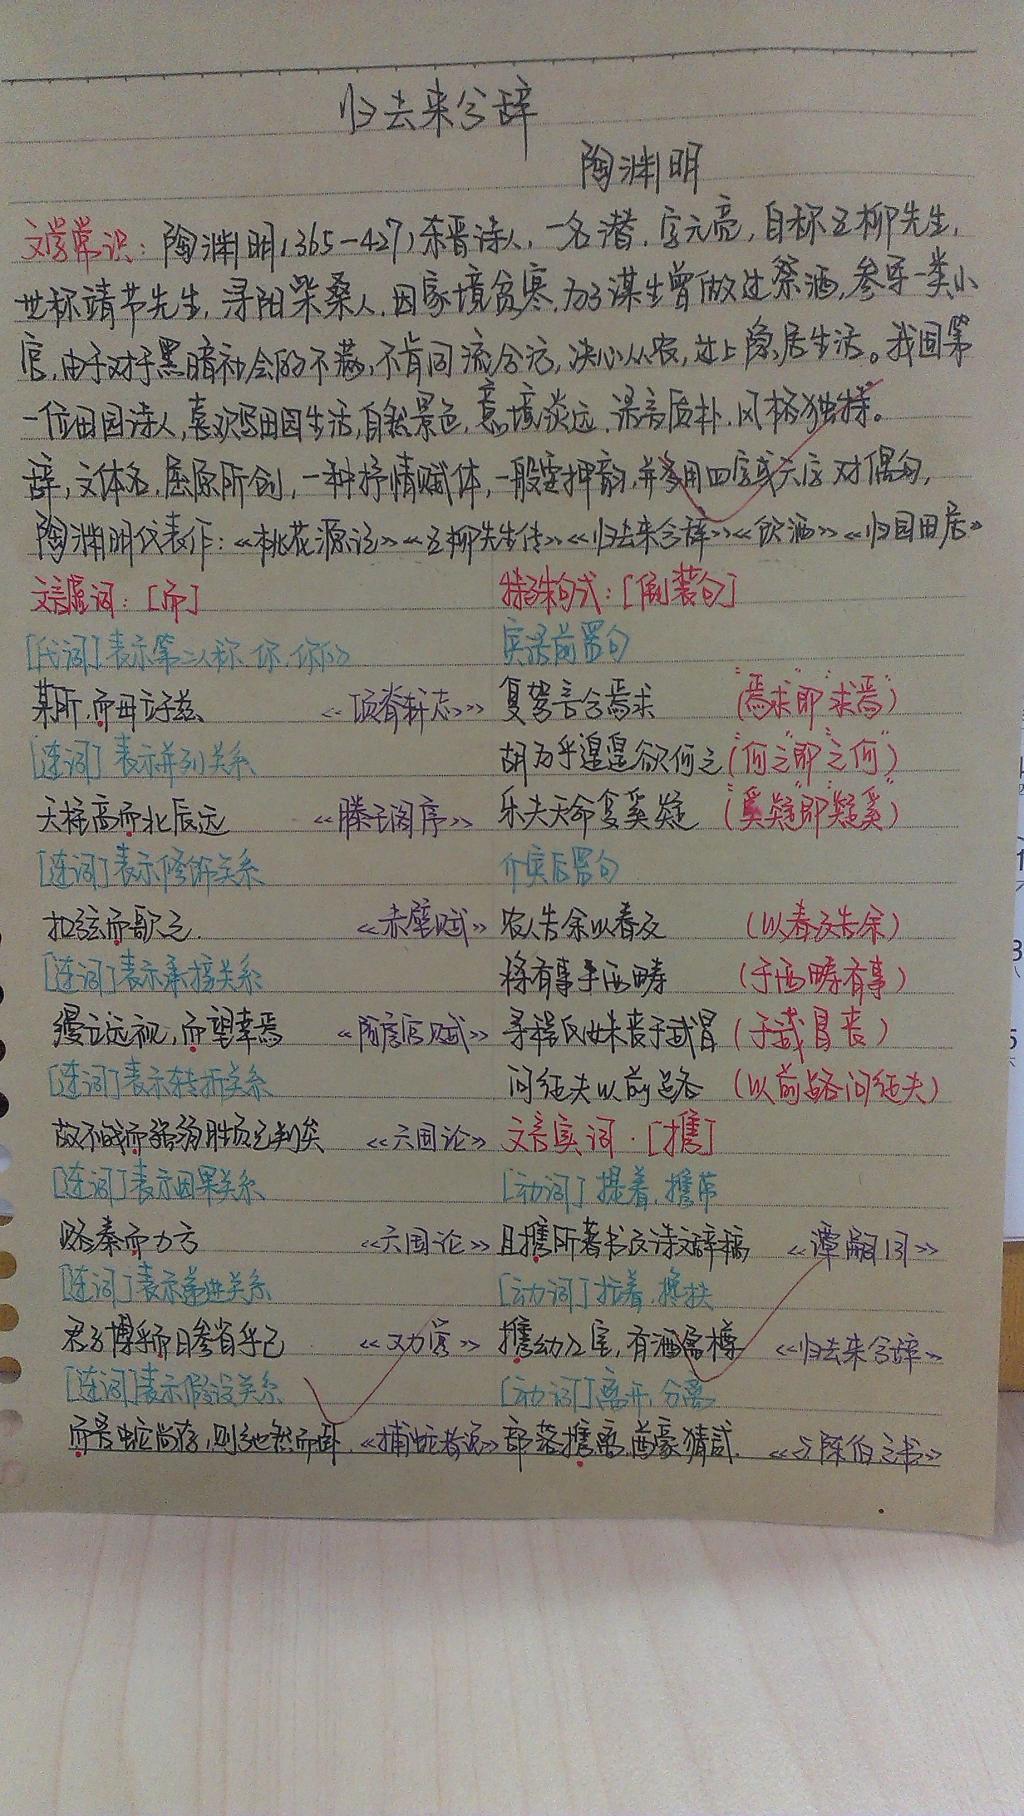 归去来兮辞
陶渊明
文学常识：陶渊明(365-427)东晋诗人，一名潜，字元亮，自称五柳先生，
世称靖节先生，寻阳柴桑人，因家境贫寒，为了谋生曾做过祭酒，参军一类小
官，由于对于黑暗社会的不满，不肯同流合污，决心从农，过上隐居生活。我国第
一位田园诗人，喜欢写田园生活，自然景色，意境淡远，语言质朴，风格独特。
辞，文体名，屈原所创，一种抒情赋体，一般要押韵，并多用四字或六字对偶句，
陶渊明代表作：《桃花源记》《五柳先生传》《归去来兮辞》《饮酒》《归园田居》
文言虚词：[而] 特殊句式：[倒装句]
[代词]表示第二人称 你，你的 宾语前置句
某所，而母立于兹 《项脊轩志》 复驾言兮焉求 (“焉求”即“求焉”)
[连词]表示并列关系 胡为乎遑遑欲何之(“何之”即“之何”)
天柱高而北辰远 《滕王阁序》 乐夫天命复奚疑 (“奚疑”即“疑奚”)
[连词]表示修饰关系 介宾后置句
扣弦而歌之. 《赤壁赋》 农人告余以春及 (以春及告余)
[连词]表示承接关系 将有事乎西畴 (于西畴有事)
缦立远视，而望幸焉 《阿房宫赋》 寻程氏妹丧于武昌 (于武昌丧)
[连词]表示转折关系 问征夫以前路 (以前路问征夫)
故不战而强弱胜负已判矣 《六国论》 文言实词·[携]
[连词]表示因果关系 [动词]提着，携带
赂秦而力亏 《六国论》 且携所著书及诗文辞稿 《谭嗣同》
[连词]表示递进关系 [动词]拉着，搀扶
君子博学而日参省乎己 《劝学》 携幼入室，有酒盈樽 《归去来兮辞》
[连词]表示假设关系 [动词]离开，分离
而吾蛇尚存，则弛然而卧.《捕蛇者说》 部落携离，酋豪猜贰. 《与陈伯之书》